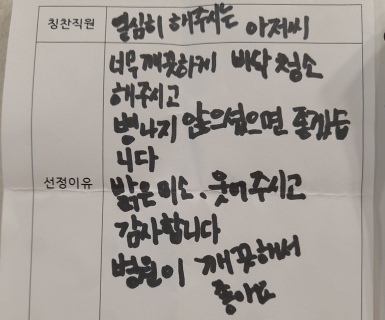 칭찬직원
열심히 해주시는 아저씨
선정이유
너무 깨끗하게 바닥 청소
해주시고
병나지 않으셨으면 좋겠습
니다
밝은 미소, 웃어주시고
감사합니다
병원이 깨끗해서
좋아요